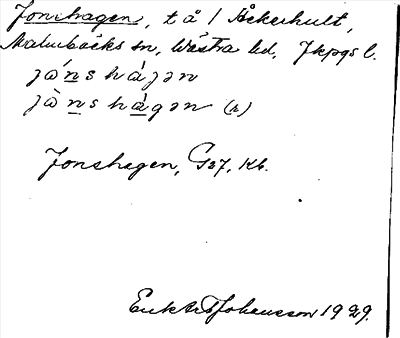 Jonshagen, t å 1 Åkerhult,
Malmbäcks sn, Västra hd, Jkpgs l.
jó̀nshájən
jò̀nshágən (h)
Jonshagen, G27, Kb.
Erik A Johansson 1929.